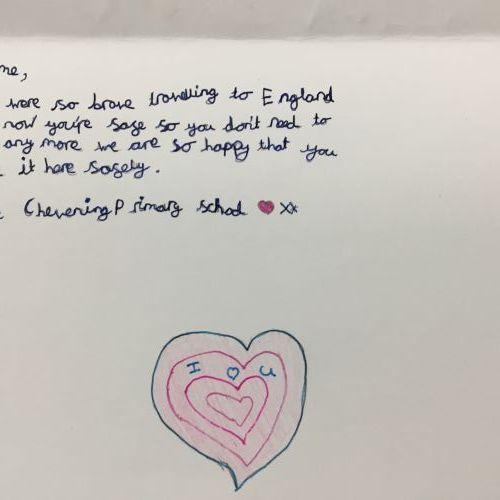 me,
were so brave travelling to England
now you're sage so you don't need to
any more we are so happy that you
it here sagely.
Chevening Primary school ❤ xx
I ♡ U